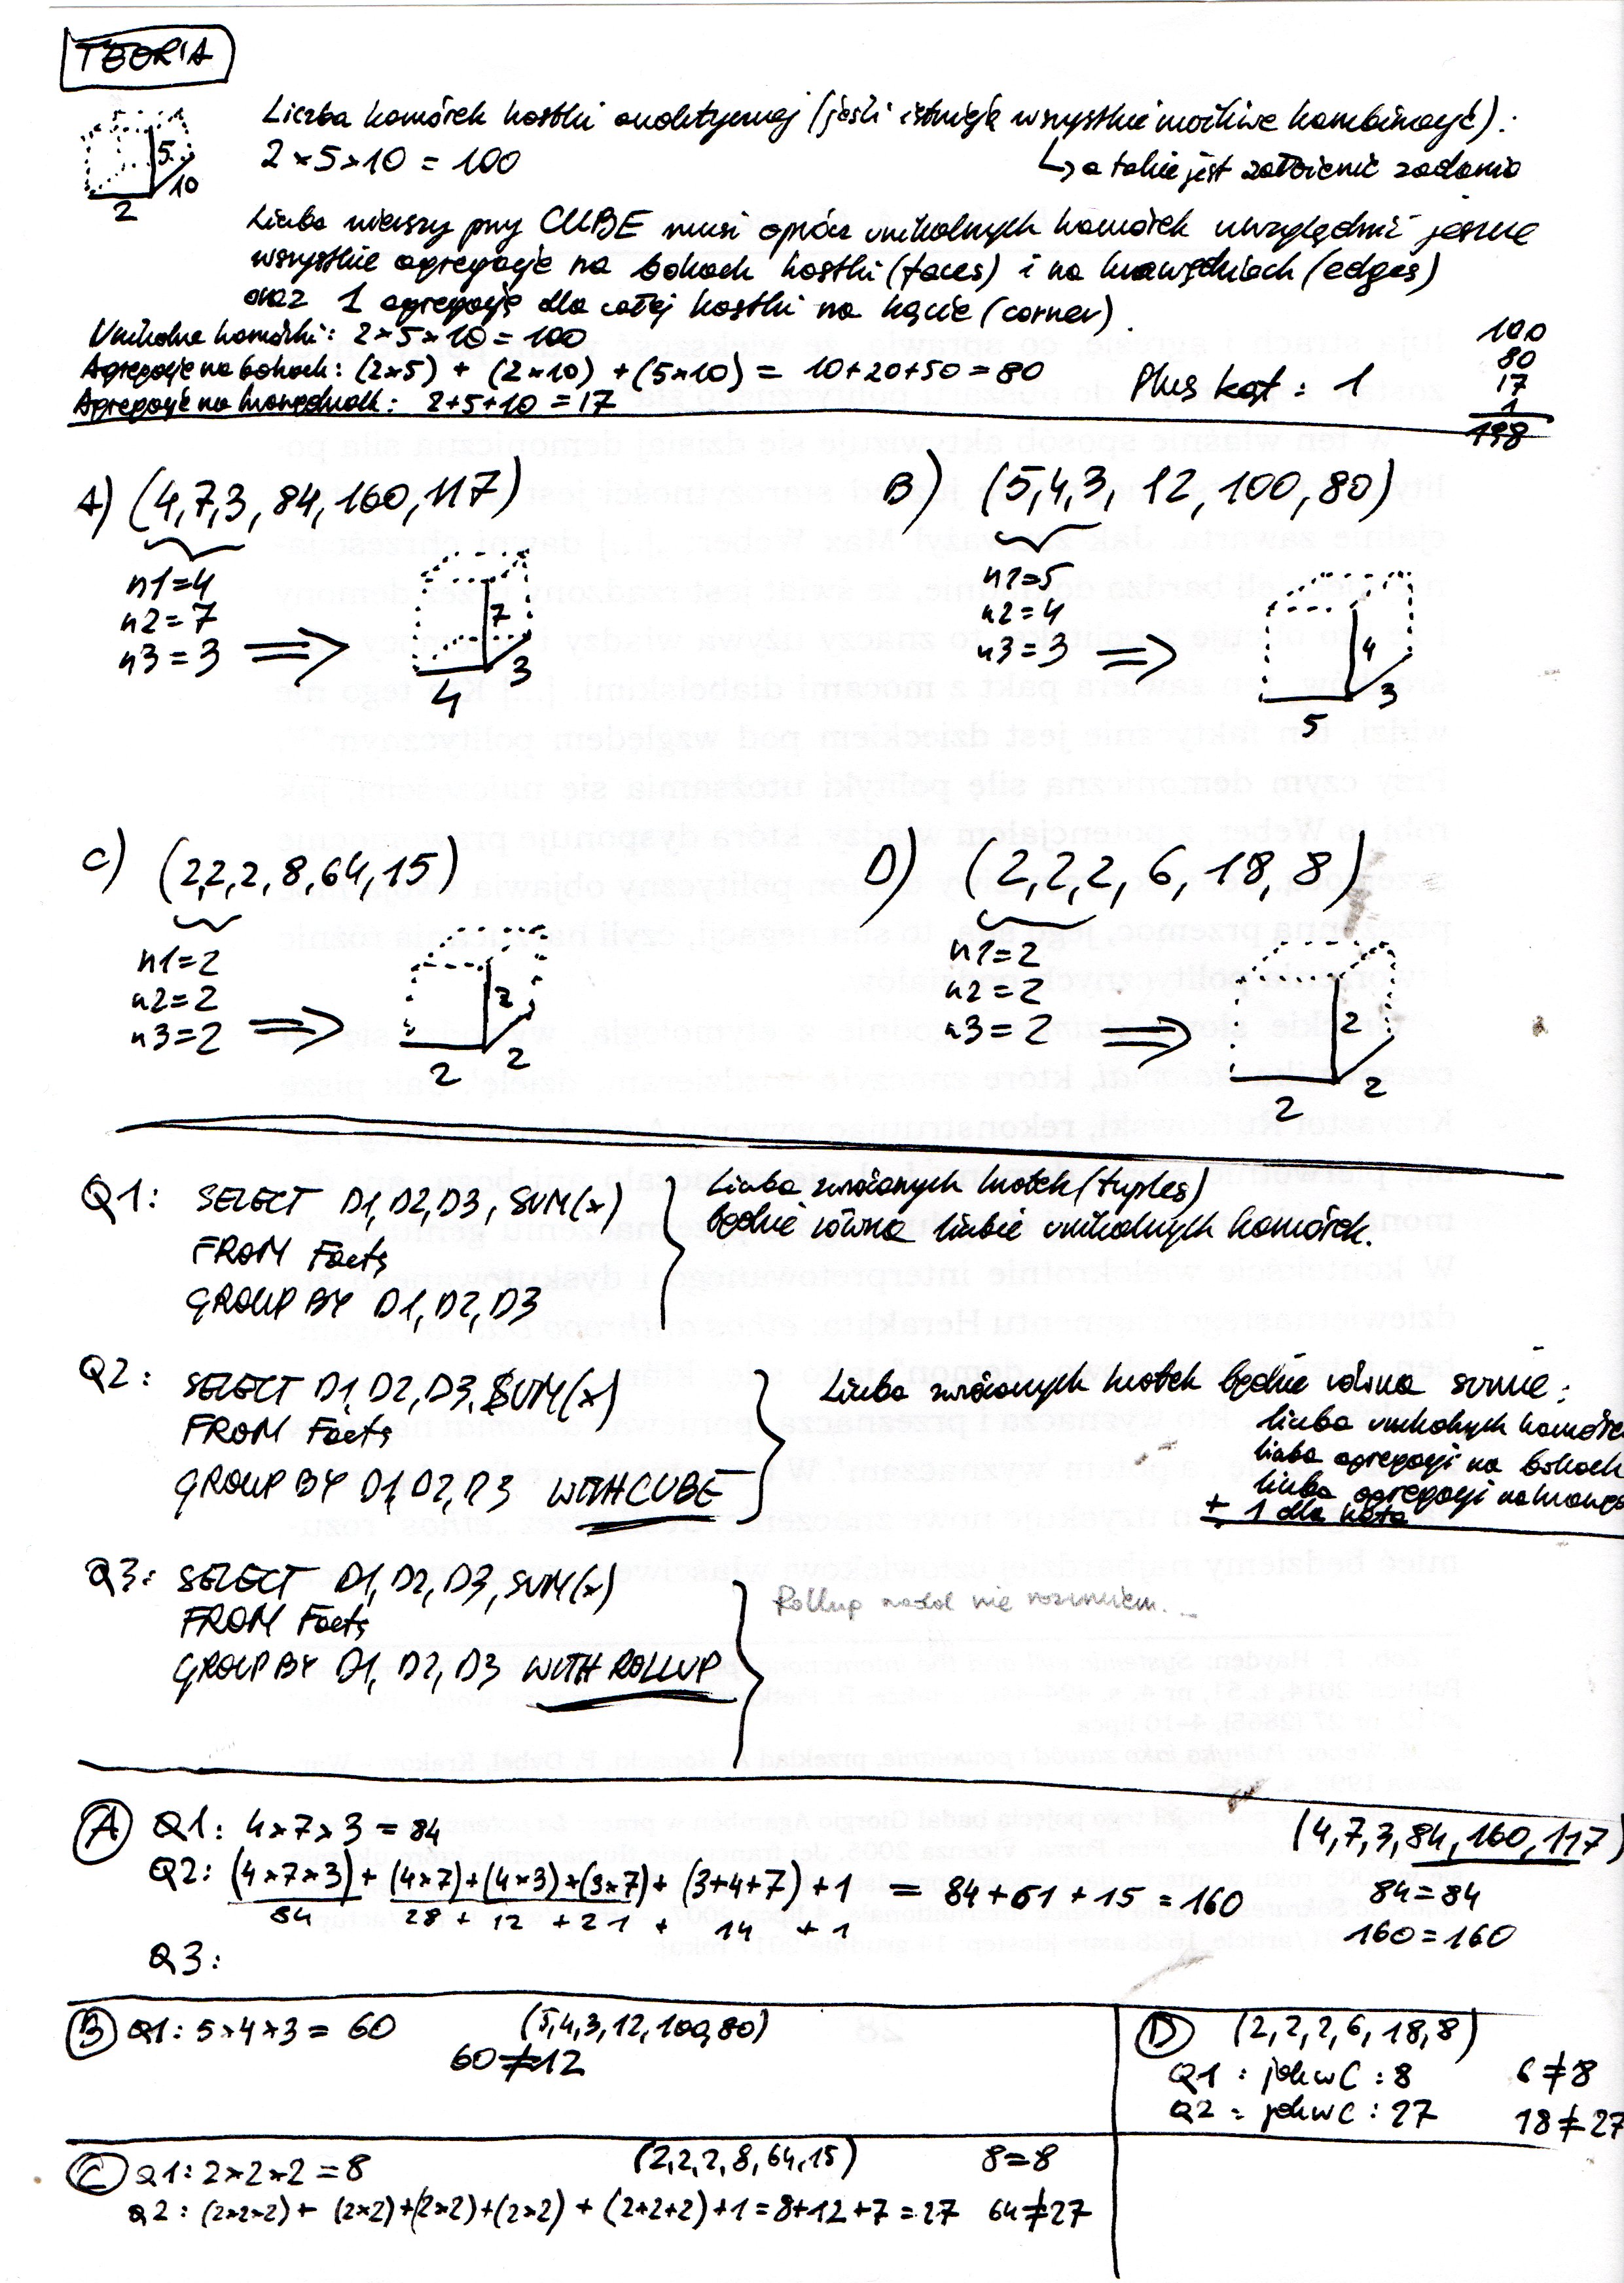 TEORIA
Liczba komórek kostki analitycznej (jeśli istnieją wszystkie możliwe kombinacje):
2×5×10 = 100
↳ a takie jest założenie zadania
5
10
2
Liczba wierszy przy CUBE musi oprócz unikalnych komórek uwzględnić jeszcze
wszystkie agregacje na bokach kostki (faces) i na krawędziach (edges)
oraz 1 agregację dla całej kostki na kącie (corner).
Unikalne komórki: 2×5×10 = 100
Agregacje na bokach: (2×5) + (2×10) + (5×10) = 10+20+50 = 80
Agregacje na krawędziach: 2+5+10 = 17
Plus kąt: 1
100
80
17
1
198
A) (4,7,3, 84, 160, 117)
n1=4
n2=7
n3=3 ⇒
7
3
4
B) (5,4,3, 12, 100, 80)
n1=5
n2=4
n3=3 ⇒
4
3
5
C) (2,2,2, 8, 64, 15)
n1=2
n2=2
n3=2 ⇒
2
2
2
D) (2,2,2, 6, 18, 8)
n1=2
n2=2
n3=2 ⇒
2
2
2
Q1: SELECT D1, D2, D3, SUM(x)
FROM Facts
GROUP BY D1, D2, D3
Liczba zwróconych krotek (tuples)
będzie równa liczbie unikalnych komórek.
Q2: SELECT D1, D2, D3, SUM(x)
FROM Facts
GROUP BY D1, D2, D3 WITH CUBE
Liczba zwróconych krotek będzie równa sumie:
liczba unikalnych komórek
liczba agregacji na bokach
liczba agregacji na krawęd
+ 1 dla kąta
Q3: SELECT D1, D2, D3, SUM(x)
FROM Facts
GROUP BY D1, D2, D3 WITH ROLLUP
Rollup nadal nie rozumiem...
(A) Q1: 4×7×3 = 84
(4,7,3,84,160,117)
Q2: (4×7×3) + (4×7)+(4×3)+(3×7) + (3+4+7) + 1 = 84+61+15 = 160
84 28 + 12 + 21 + 14 + 1
84=84
160=160
Q3:
(B) Q1: 5×4×3 = 60
(5,4,3,12,100,80)
60≠12
(D) (2,2,2,6,18,8)
Q1: jak w C: 8
6≠8
Q2 = jak w C: 27
18≠27
(C) Q1: 2×2×2 = 8
(2,2,2,8,64,15)
8=8
Q2: (2×2×2) + (2×2)+(2×2)+(2×2) + (2+2+2)+1 = 8+12+7 = 27
64≠27